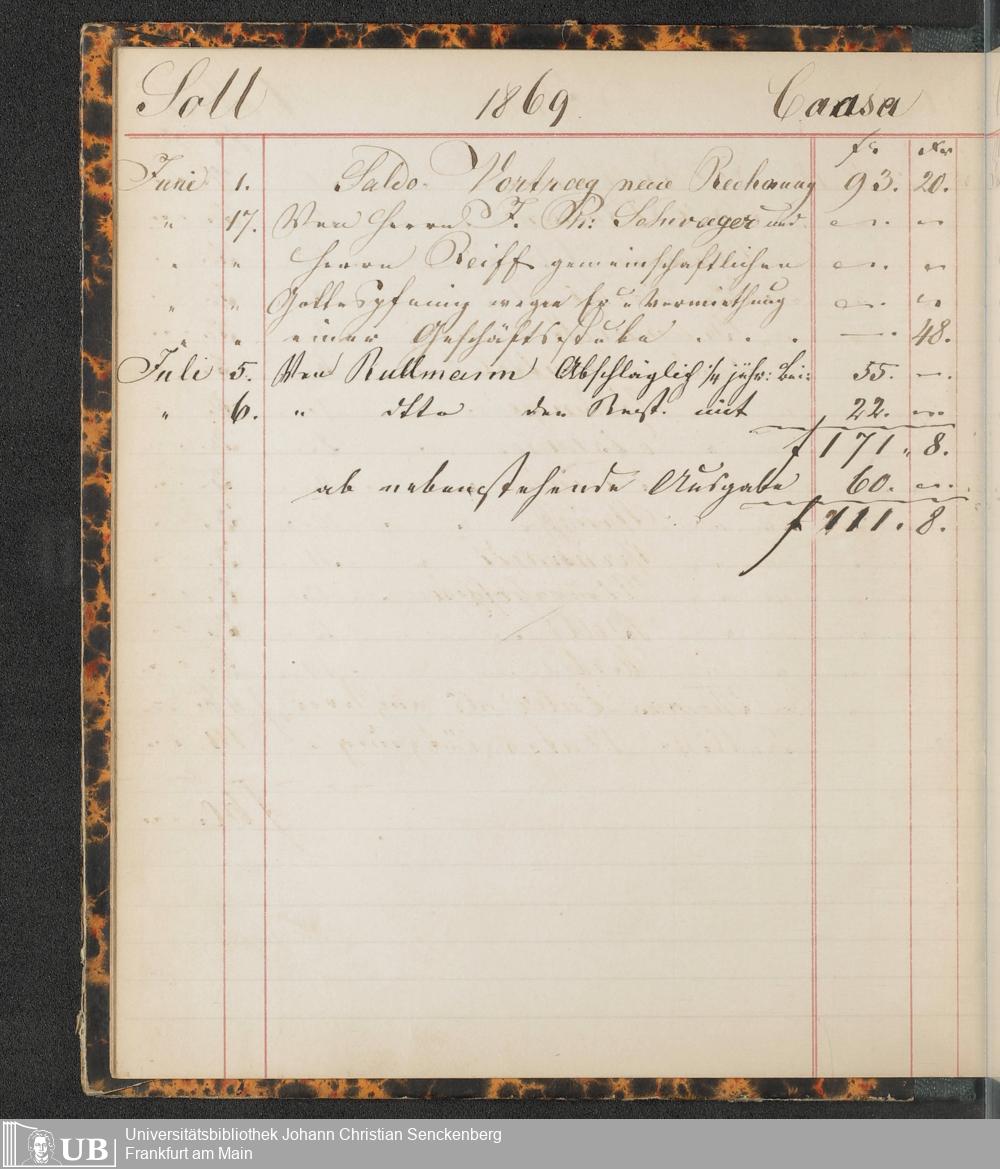 Soll 1869 Cassa
fr. Kr
Juni 1. Saldo Vortrag neue Rechnung 93. 20.
" 17. Von Herrn J. Ph: Schwager und — —
" " Herrn Reiff gemeinschaftlichen — —
" " Gottespfennig wegen Vermiethung — —
" " einer Geschäftsstube . . . — 48.
Juli 5. Von Rullmann Abschläglich ¼ jähr: Bei: 55. —.
" 6. " dtto den Rest mit 22. —
f 171 " 8.
ab nebenstehende Ausgabe 60. —.
f 111. 8.
UB Universitätsbibliothek Johann Christian Senckenberg
Frankfurt am Main